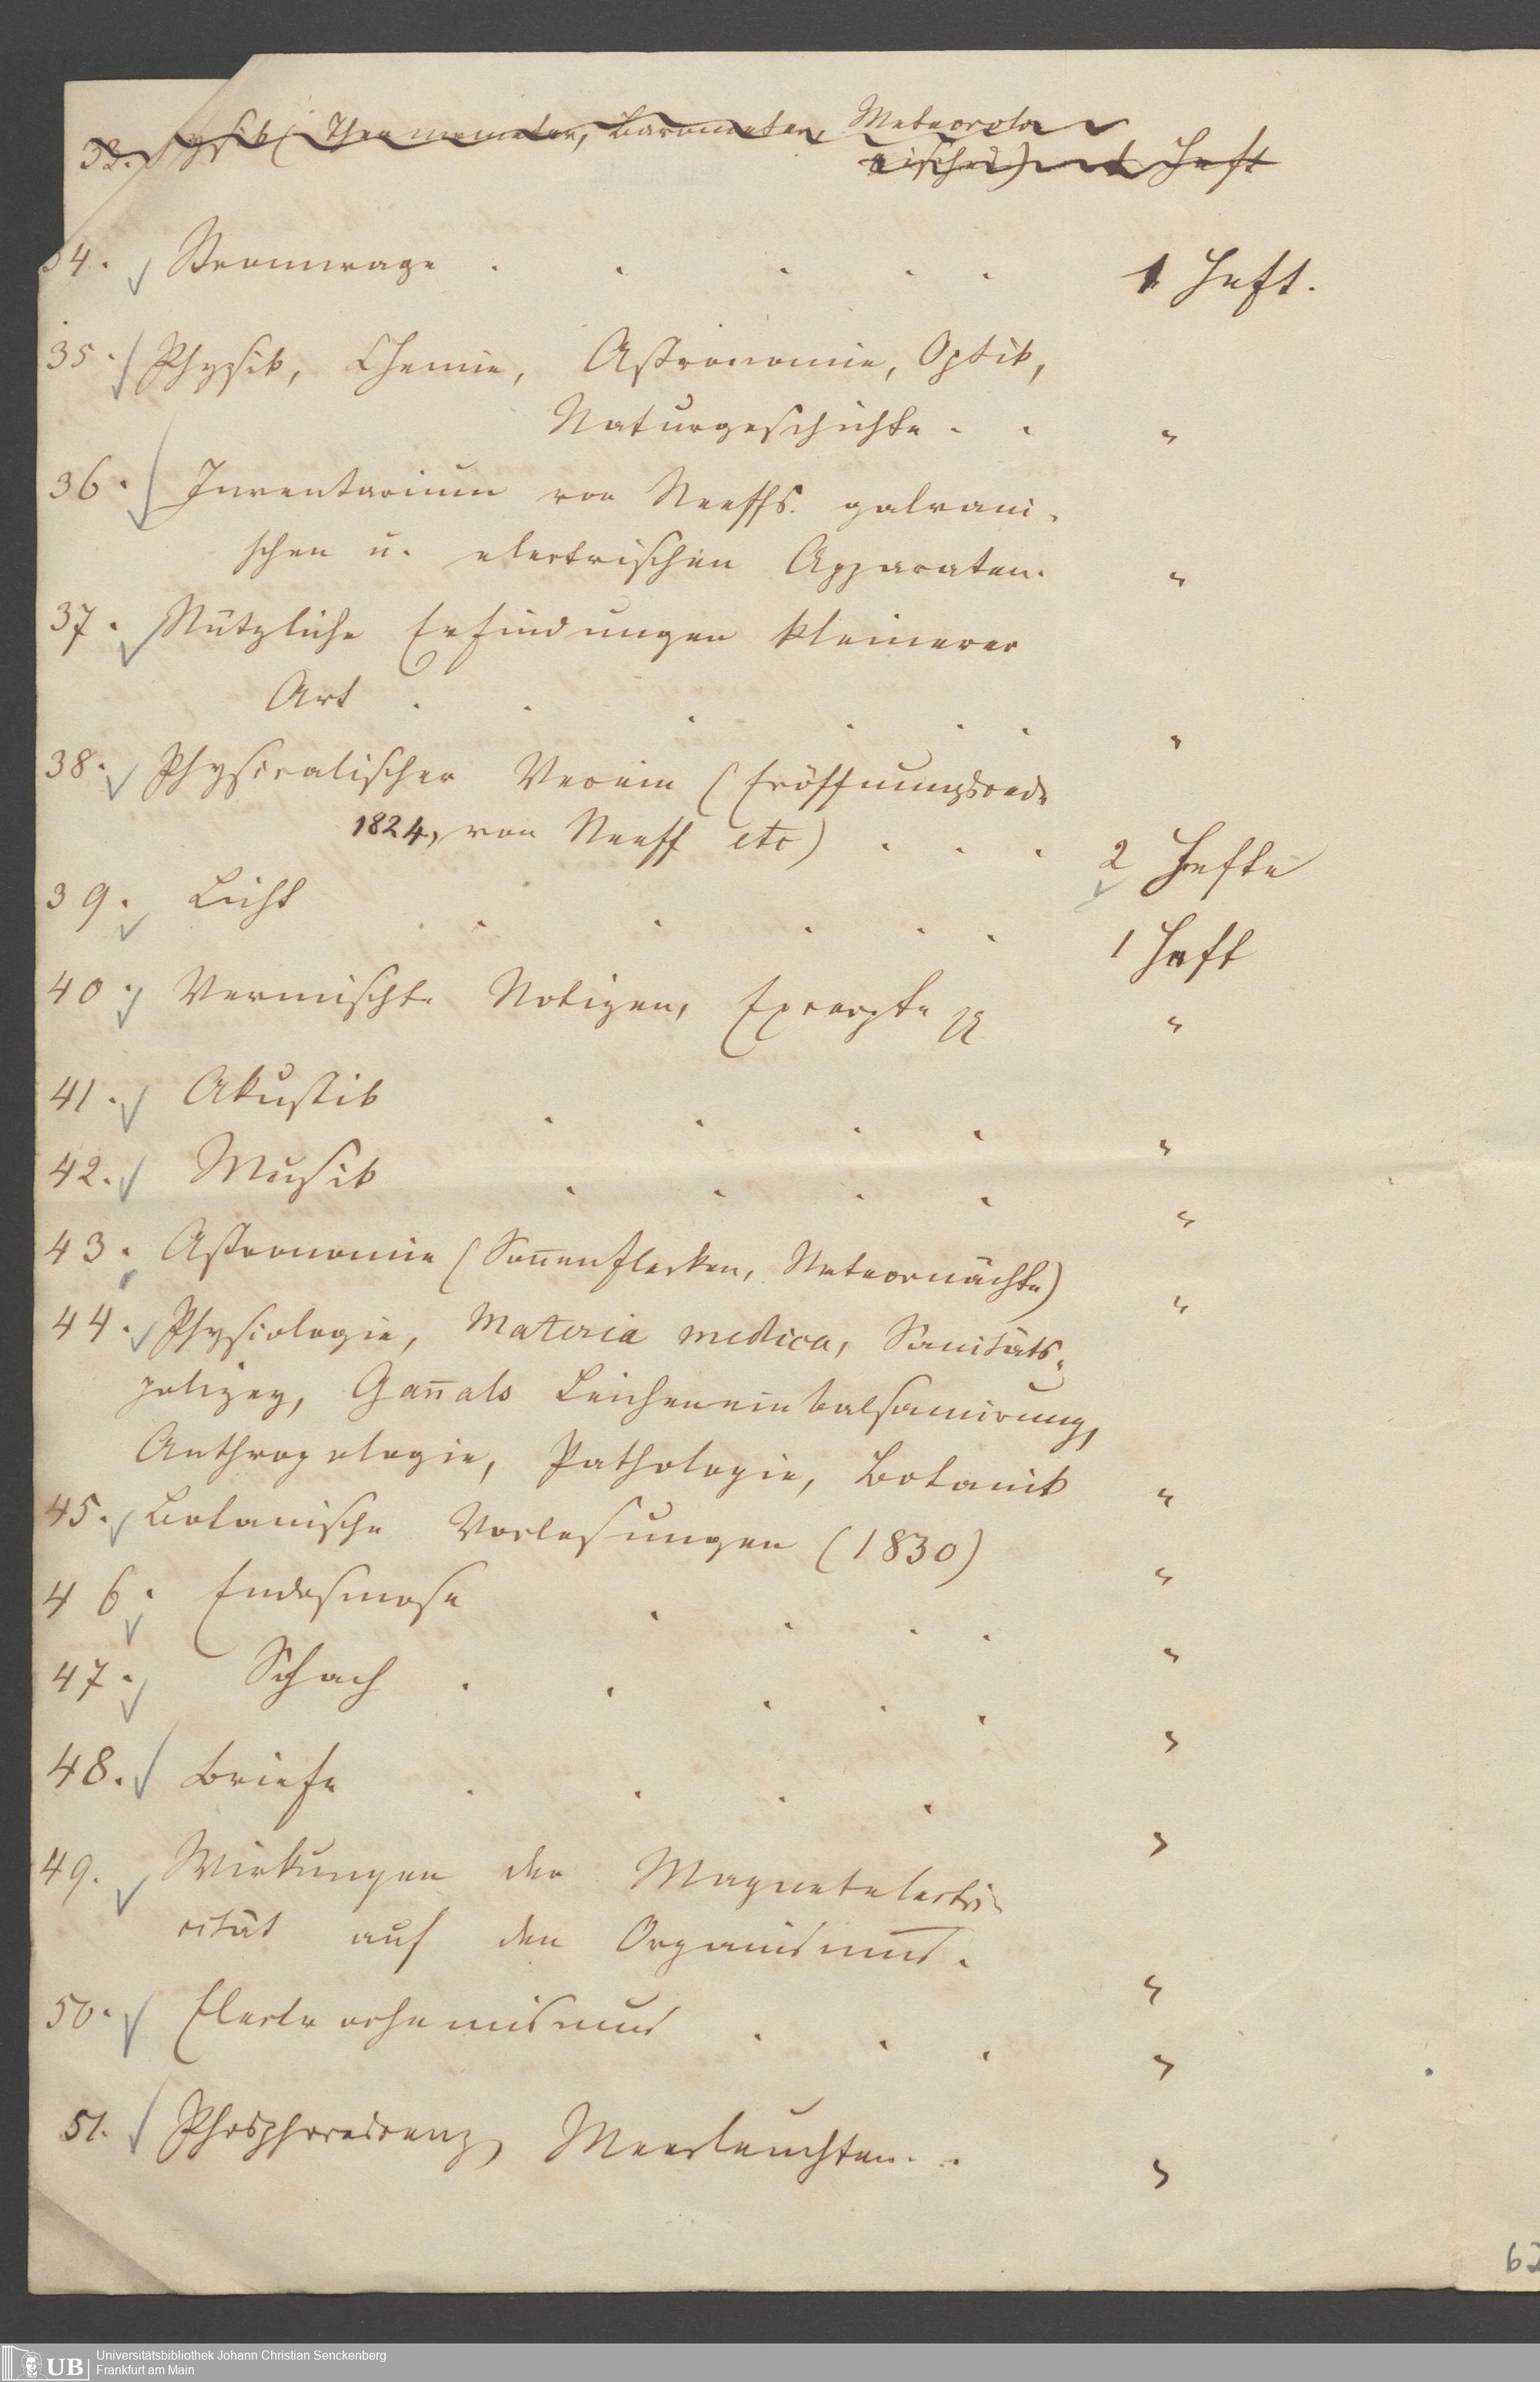 33. Physik (Thermometer, Barometer, Meteorolo
gisches) 1 Heft
34. Stromwage . . . . . 1 Heft.
35. Physik, Chemie, Astronomie, Optik,
Naturgeschichte . . "
36. Inventarium von Neeffs galvani-
schen u. electrischen Apparaten. "
37. Nützliche Erfindungen kleinerer
Art . . . . . . "
38. Physicalischer Verein (Eröffnungsrede
1824, von Neeff etc) . . . 2 Hefte
39. Licht . . . . . . 1 Heft
40. Vermischte Notizen, Excerpte "
41. Akustik . . . . "
42. Musik . . . . "
43. Astronomie (Son̄enflecken, Meteornächte) "
44. Physiologie, Materia medica, Sanitäts-
polizey, Gan̄als Leicheneinbalsamirung,
Anthropologie, Pathologie, Botanik "
45. Botanische Vorlesungen (1830) "
46. Endosmose . . . . "
47. Schach . . . . . "
48. Briefe . . . . "
49. Wirkungen der Magnetelectri-
cität auf den Organismus. "
50. Electrochemismus . . . "
51. Phosphorescenz, Meerleuchten . . "
62
UB
Universitätsbibliothek Johann Christian Senckenberg
Frankfurt am Main